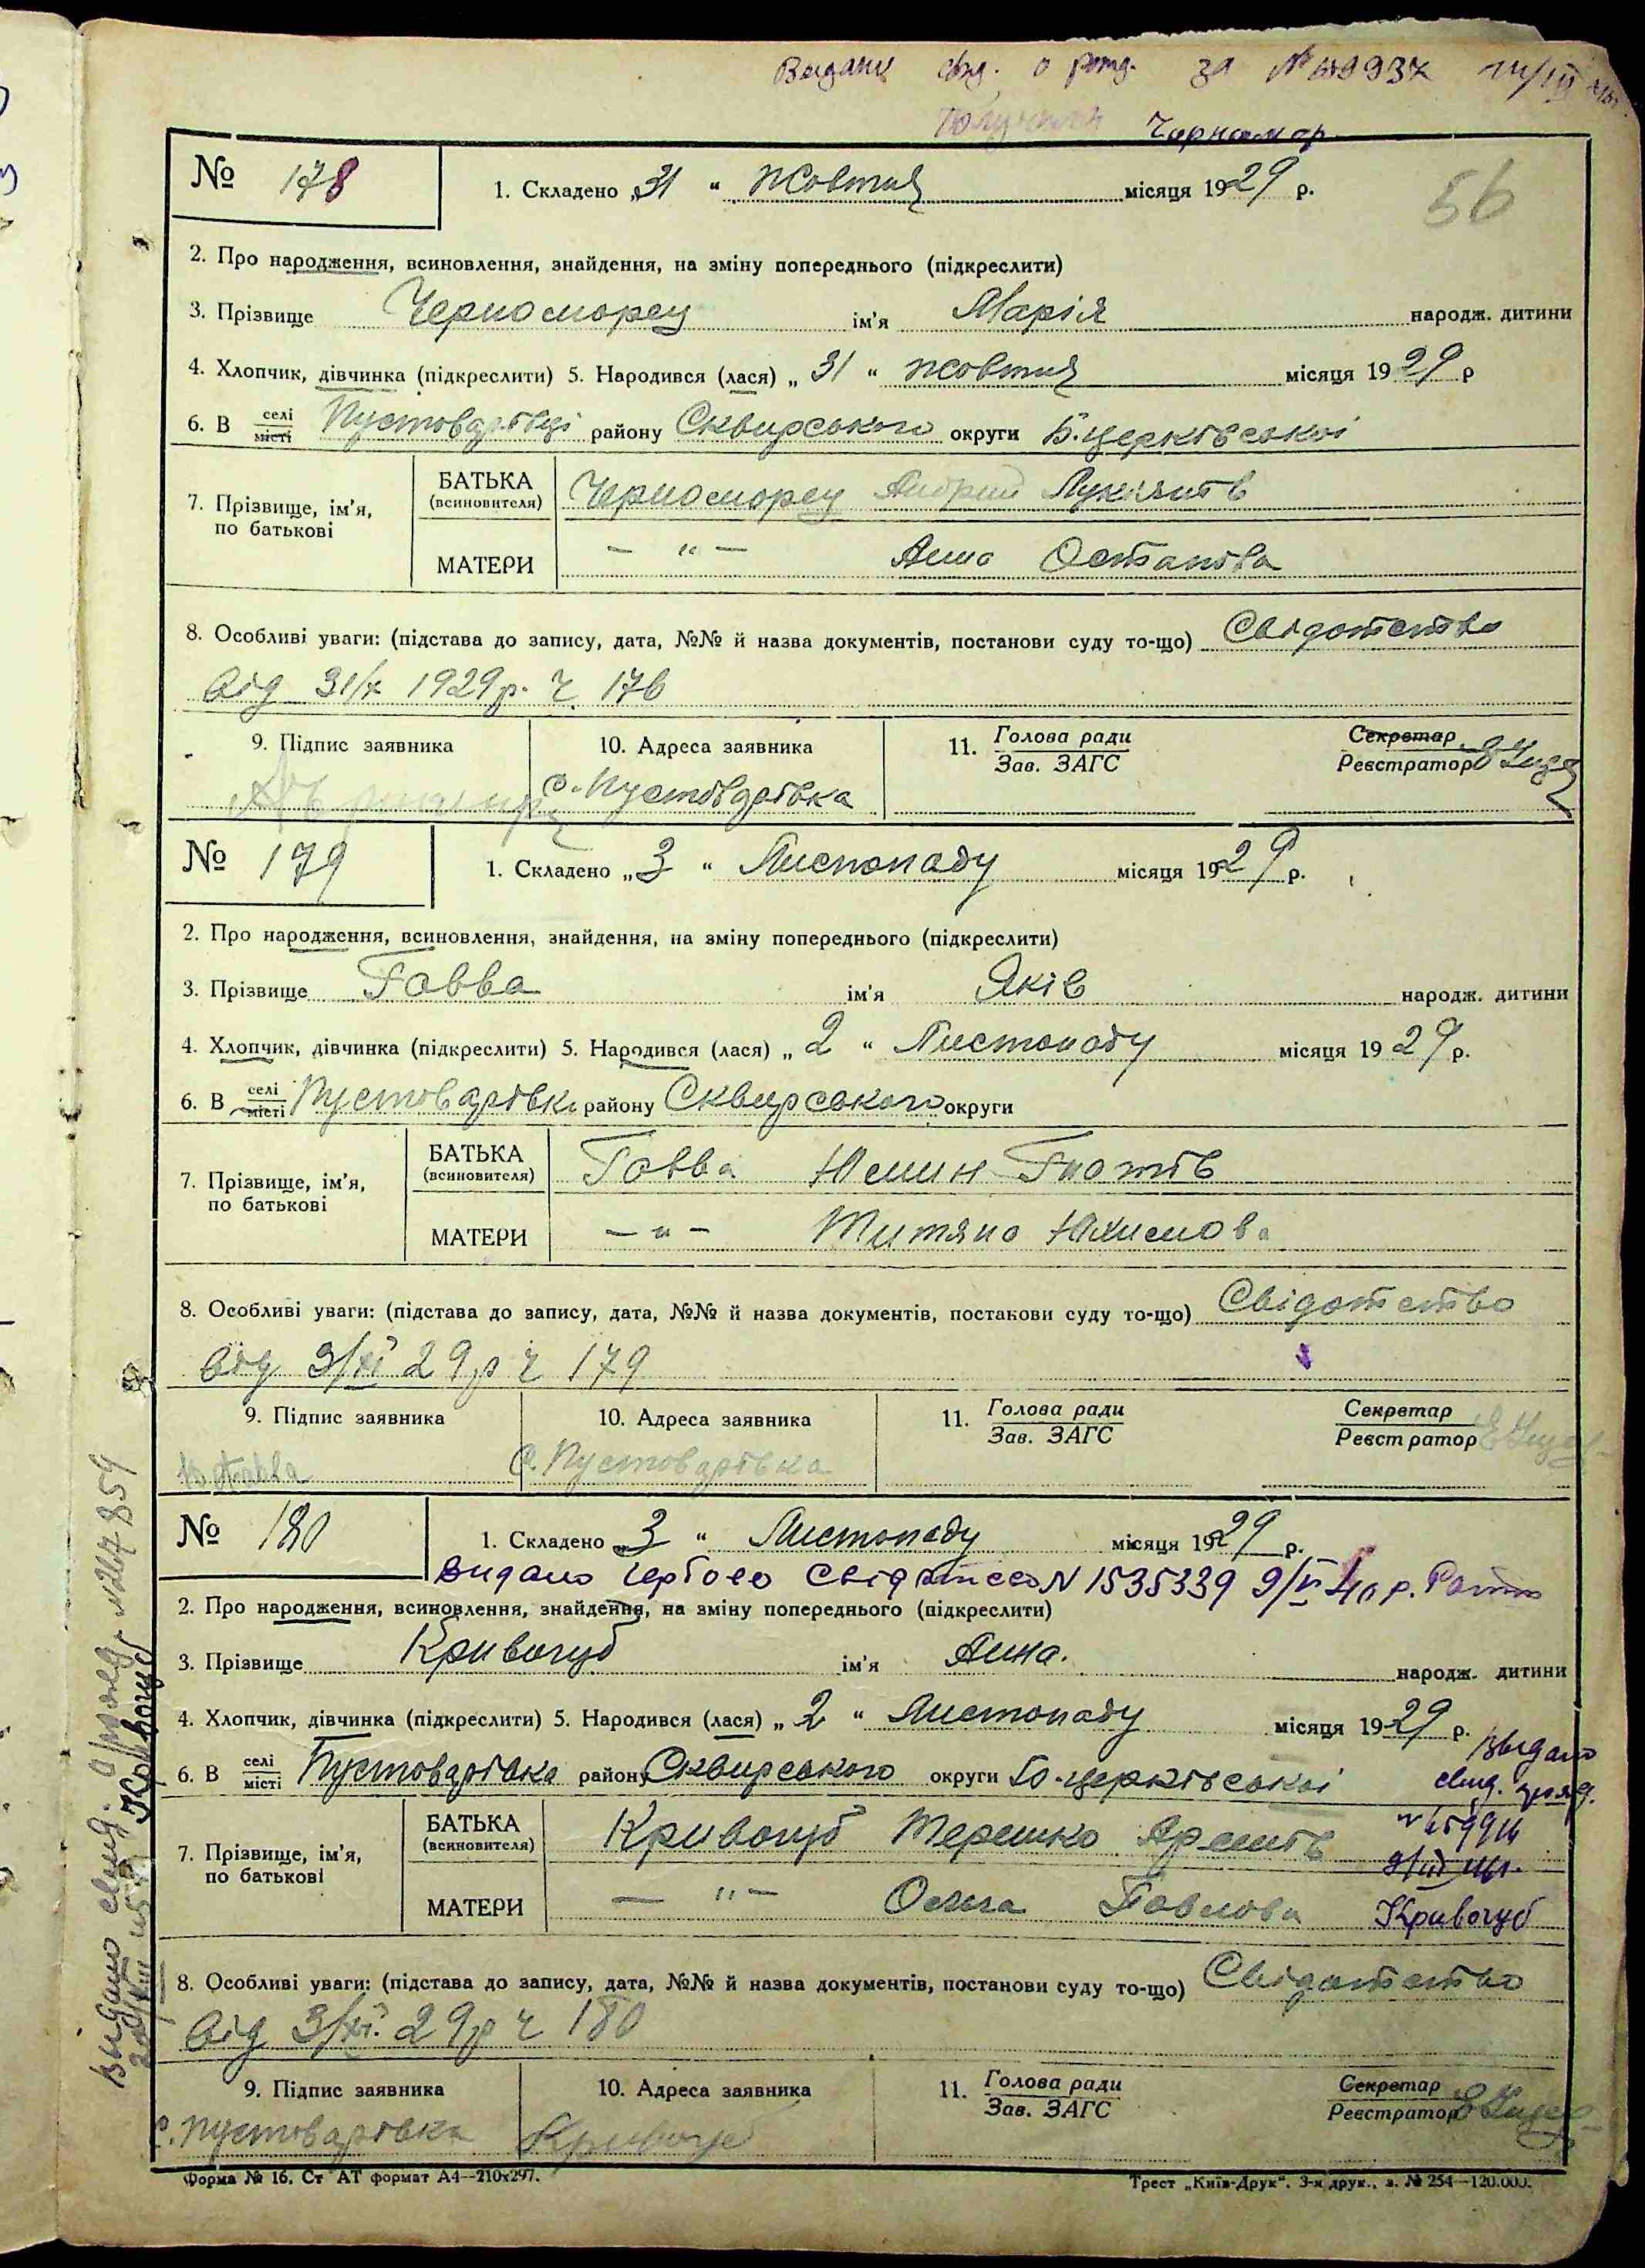 Видану свид. о рожд. за №
Чорномор
№ 178 1. Складено „31“ Жовтня місяця 1929 р.
56
2. Про народження, всиновлення, знайдення, на зміну попереднього (підкреслити)
3. Прізвище Черноморец ім'я Марія народж. дитини
4. Хлопчик, дівчинка (підкреслити) 5. Народився (лася) „31“ жовтня місяця 1929 р
6. В селі місті Пустоварівці району Сквирського округи Б.церківської
7. Прізвище, ім'я, по батькові
БАТЬКА (всиновителя) Черноморец Андрій
МАТЕРИ — " — Анна Остапова
8. Особливі уваги: (підстава до запису, дата, №№ й назва документів, постанови суду то-що) Свідотство
від 31/X 1929 р. ч. 178
9. Підпис заявника 10. Адреса заявника 11. Голова ради Зав. ЗАГС Секретар Реєстратор
с. Пустоварівка
№ 179 1. Складено „3“ Листопаду місяця 1929 р.
2. Про народження, всиновлення, знайдення, на зміну попереднього (підкреслити)
3. Прізвище Гавва ім'я Яків народж. дитини
4. Хлопчик, дівчинка (підкреслити) 5. Народився (лася) „2“ Листопаду місяця 1929 р.
6. В селі місті Пустоварівка району Сквирського округи
7. Прізвище, ім'я, по батькові
БАТЬКА (всиновителя) Гавва
МАТЕРИ — " —
8. Особливі уваги: (підстава до запису, дата, №№ й назва документів, постанови суду то-що) Свідотство
від 3/XI 29 р ч 179
9. Підпис заявника 10. Адреса заявника 11. Голова ради Зав. ЗАГС Секретар Реєстратор
Гавва с. Пустоварівка
№ 180 1. Складено „3“ Листопаду місяця 1929 р.
Видано N 1535339 9/VI 40 р.
2. Про народження, всиновлення, знайдення, на зміну попереднього (підкреслити)
3. Прізвище Кривогуб ім'я Анна. народж. дитини
4. Хлопчик, дівчинка (підкреслити) 5. Народився (лася) „2“ Листопаду місяця 1929 р.
6. В селі місті Пустоварівка району Сквирського округи Б.церківської
Видано
свид.
7. Прізвище, ім'я, по батькові
БАТЬКА (всиновителя) Кривогуб Терешко
МАТЕРИ — " — Ольга Павлова
Кривогуб
8. Особливі уваги: (підстава до запису, дата, №№ й назва документів, постанови суду то-що) Свідотство
від 3/XI. 29 р ч 180
9. Підпис заявника 10. Адреса заявника 11. Голова ради Зав. ЗАГС Секретар Реєстратор
с. Пустоварівка Кривогуб
Форма № 16. Ст АТ формат А4—210х297. Трест „Київ-Друк“. 3-я друк., з. № 254—120.000.
Видано свид.
Кривогуб